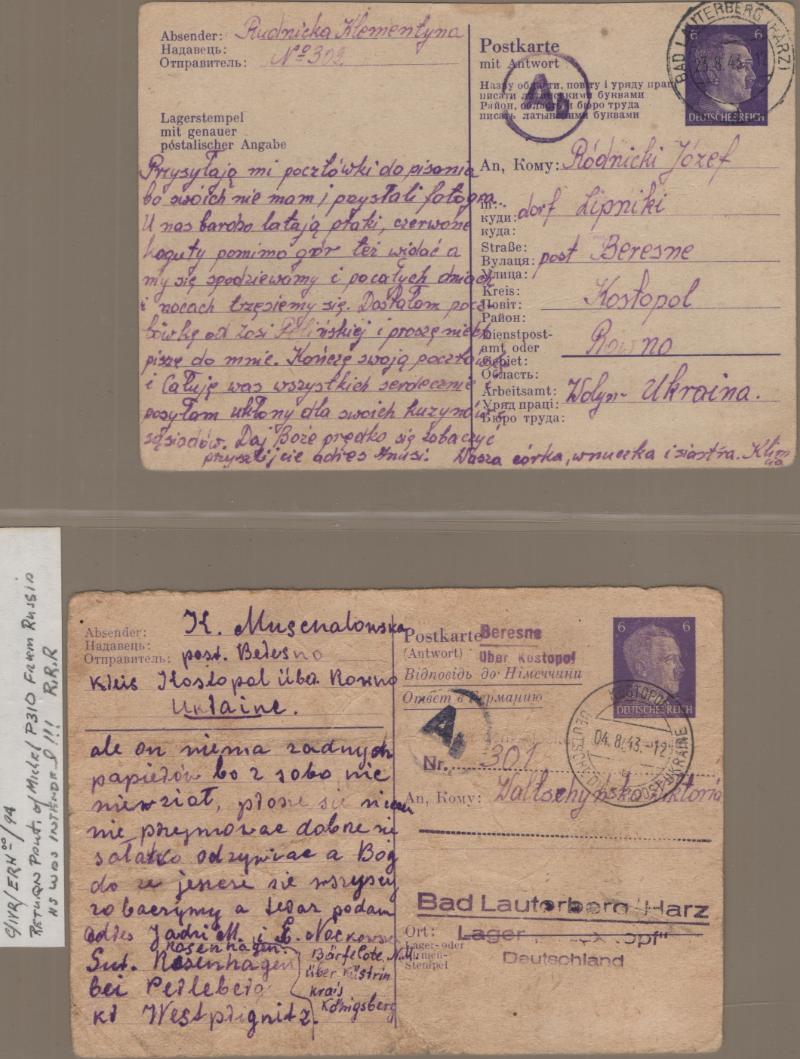 Absender: Rudnicka Klementyna
Надавець:
Отправитель: № 302
Lagerstempel
mit genauer
postalischer Angabe
Przysyłają mi pocztówki do pisania
bo swoich nie mam i przystali fotogra
U nas bardzo latają ptaki, czerwone
koguty pomimo gór też widać a
my się spodziewamy i po całych dniach
i nocach trzęsiemy się. Dostałam pocz
tówkę od Zosi i proszę niech
piszę do mnie. Kończę swoją pocztówkę
i Całuję was wszystkich serdecznie i
posyłam ukłony dla swoich kuzynów i
sąsiadów. Daj Boże prędko się zobaczyć
przyszlijcie adres Anusi. Wasza córka, wnuczka i siastra. Klim
Postkarte
mit Antwort
Назву области, пошту і уряду праці
писати латинськими буквами
Район, область и бюро труда
писать латынскими буквами
An, Кому: Ródnicki Józef
in:
куди: dorf Lipniki
куда:
Straße:
Вулаця: post Beresne
Улица:
Kreis:
Повіт: Kostopol
Район:
Dienstpost-
amt oder Rowno
Gebiet:
Область:
Arbeitsamt: Wolyn- Ukraina.
Уряд праці:
Бюро труда:
BAD LAUTERBERG (HARZ)
23.8.43.-17
6 6
DEUTSCHES REICH
A
C/IVR/ERH 00/94
RETURN PART. of Michel P310 FROM RUSSIA
AS WAS INTENDED!!! R.R.R
Absender: K.
Надавець:
Отправитель: post. Beresno
Kreis Kostopol über Rowno
Ukraine.
ale on niema żadnych
papierów bo z sobo nie
niewział, płose się
nie przyjmować dobrze się
odzywiac a Bog
do ze jeszcze sie wszyscy
zobaczymy a teraz podam
adres
Rosenhagen
Gut. Rosenhagen
bei Perleberg
kr Westprignitz.
Bärfelde N.M.
über Küstrin
krais
Königsberg
Postkarte
(Antwort)
Beresne
über Kostopol
Відповідь до Німеччини
Ответ в Германию
A
Nr. 301
An, Кому:
6 6
DEUTSCHES REICH
KOSTOPOL
04.8.43.-12
DEUTSCHE DIENSTPOST UKRAINE
Bad Lauterberg/Harz
Ort: Lager
Lager- oder
Firmen-
Stempel
Deutschland